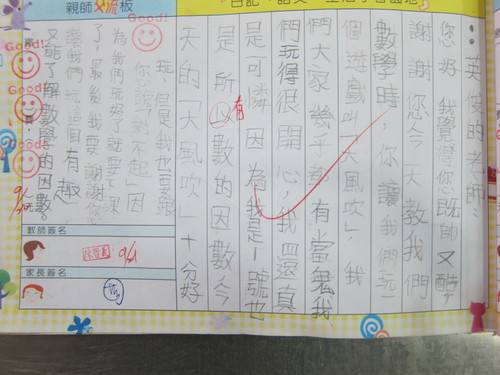 親師交流板
英俊的老師:
您好,我覺得您既帥又酷,
謝謝您今天教我們
數學時,你讓我們玩一
個遊戲叫「大風吹」,我
們大家幾乎都有當鬼,我
們玩得很開心,我還真
是可憐,因為我是1號也
是所有數的因數,今
天的「大風吹」十分好
玩,但是我也要跟
你說「對不起」因
為我們玩好了就要下課
了,最後我要謝謝你
讓我們玩這個有趣
又能了解數學的因數。
Good!
Good!
Good!
Good!
教師簽名
9/21
家長簽名